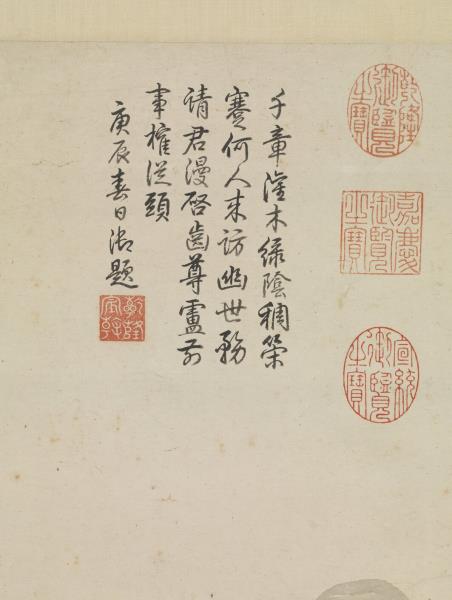 乾隆御覽之寶
嘉慶御覽之寶
宣統御覽之寶
千章灌木綠陰稠策
蹇何人來訪幽世務
請君漫啓齒尊盧前
事榷從頭
庚辰春日御題
乾隆宸翰